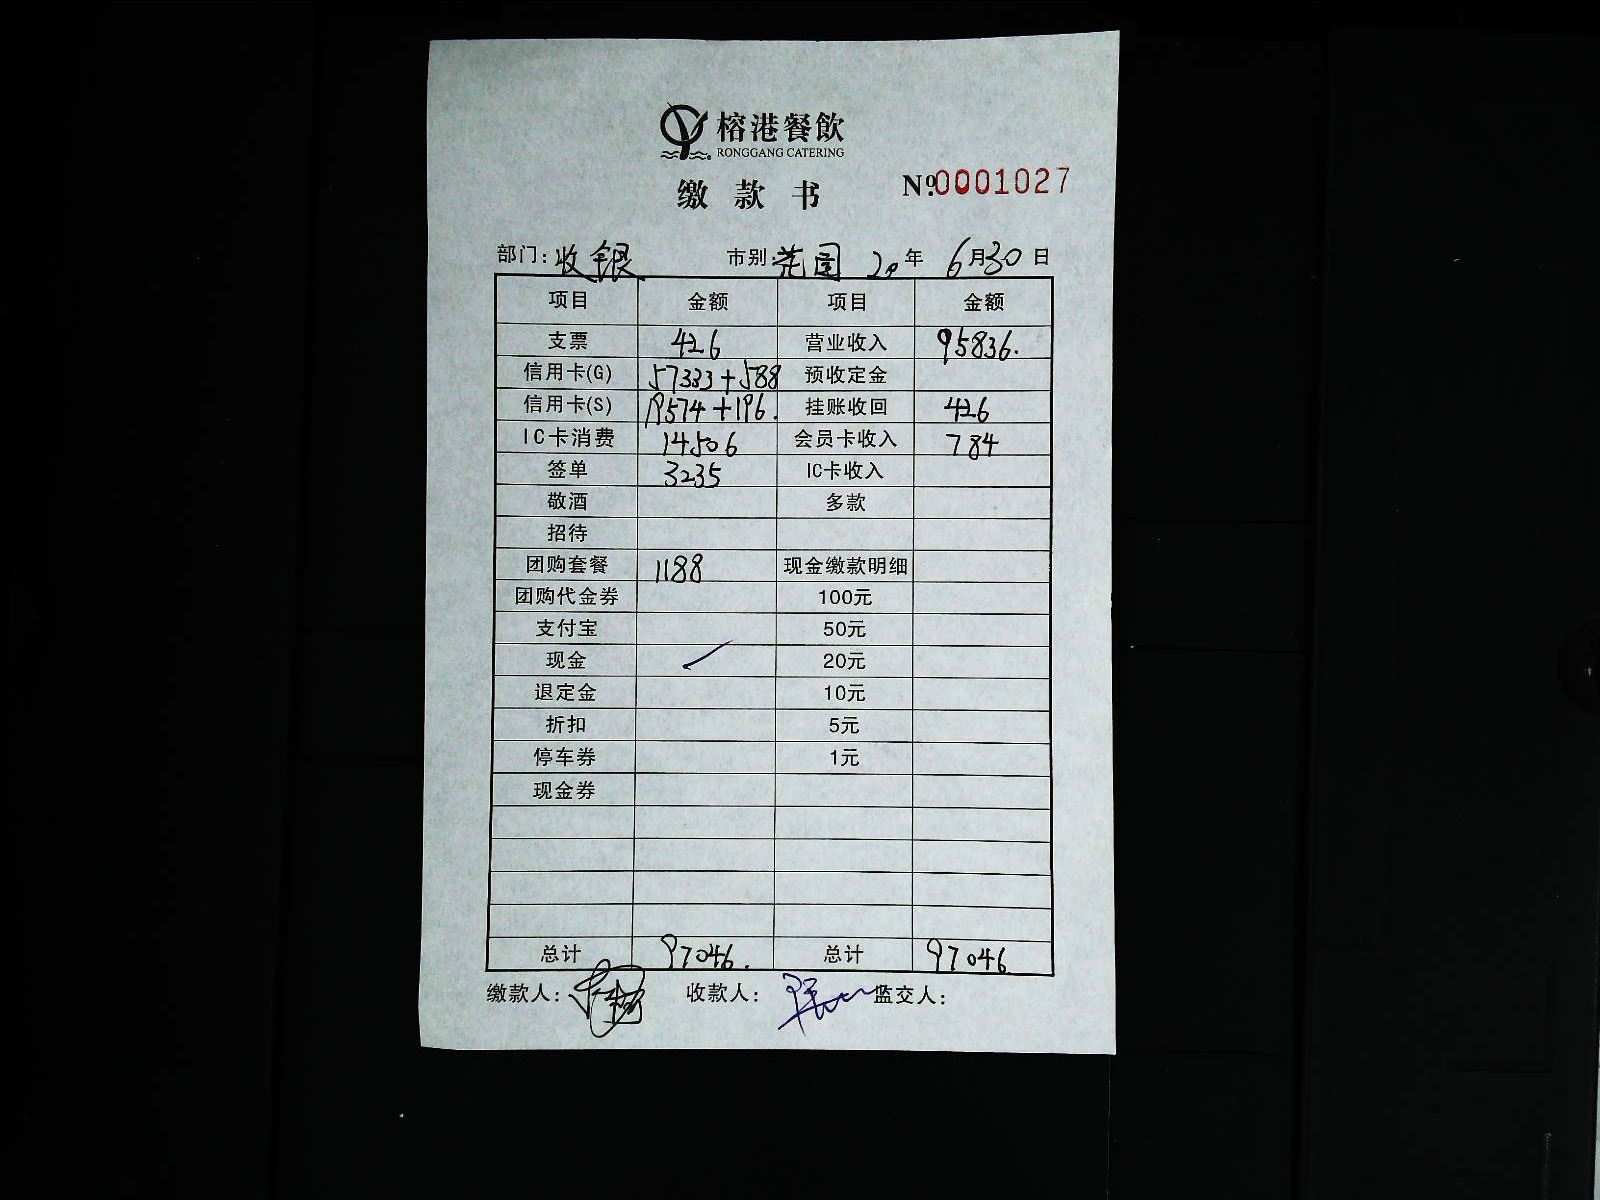 榕港餐飲
RONGGANG CATERING
缴款书 №0001027
部门：收银 市别：花园 20年 6月30日
项目 金额 项目 金额
支票 426 营业收入 95836.
信用卡(G) 57333+588 预收定金
信用卡(S) 19574+196. 挂账收回 426
IC卡消费 14506 会员卡收入 784
签单 3235 IC卡收入
敬酒 多款
招待
团购套餐 1188 现金缴款明细
团购代金券 100元
支付宝 50元
现金 20元
退定金 10元
折扣 5元
停车券 1元
现金券
总计 97046. 总计 97046
缴款人： 收款人： 监交人：